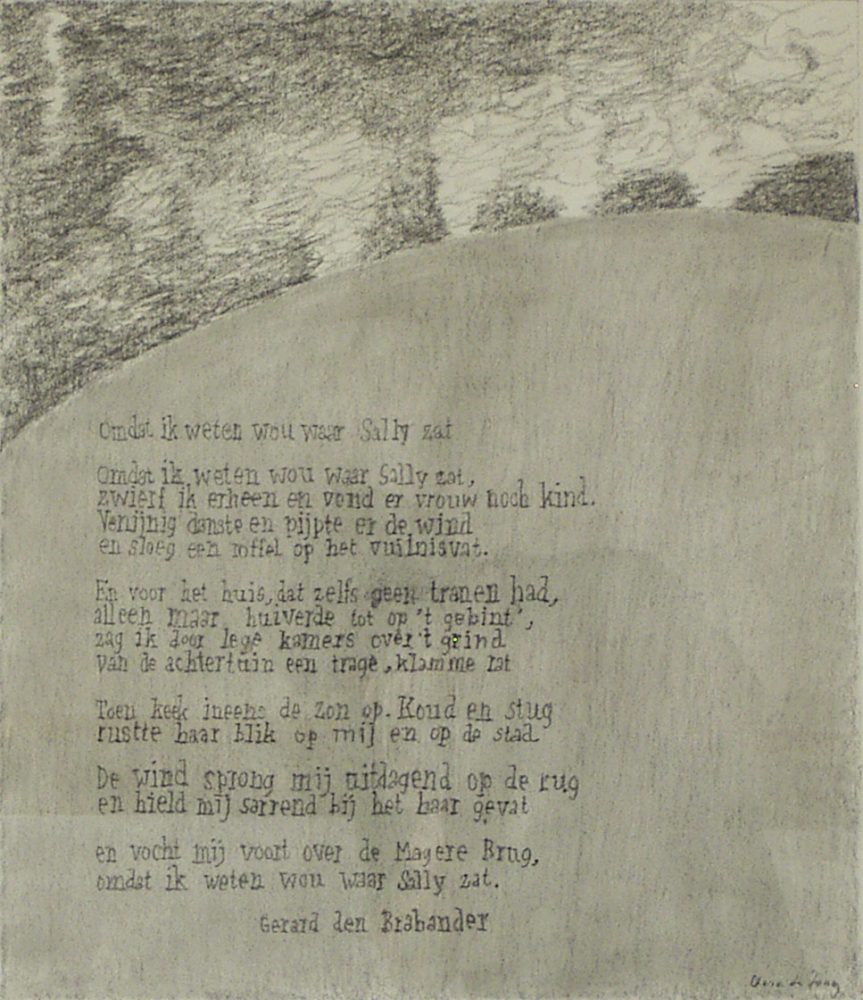 Omdat ik weten wou waar Sally zat
Omdat ik weten wou waar Sally zat,
zwierf ik erheen en vond er vrouw noch kind.
Venijnig danste en pijpte er de wind
en sloeg een roffel op het vuilnisvat.
En voor het huis, dat zelfs geen tranen had,
alleen maar huiverde tot op 't gebint',
zag ik door lege kamers over 't grind
van de achtertuin een trage, klamme rat
Toen keek ineens de zon op. Koud en stug
rustte haar blik op mij en op de stad
De wind sprong mij uitdagend op de rug
en hield mij sarrend bij het haar gevat
en vocht mij voort over de Magere Brug,
omdat ik weten wou waar Sally zat.
Gerard den Brabander
de Jong